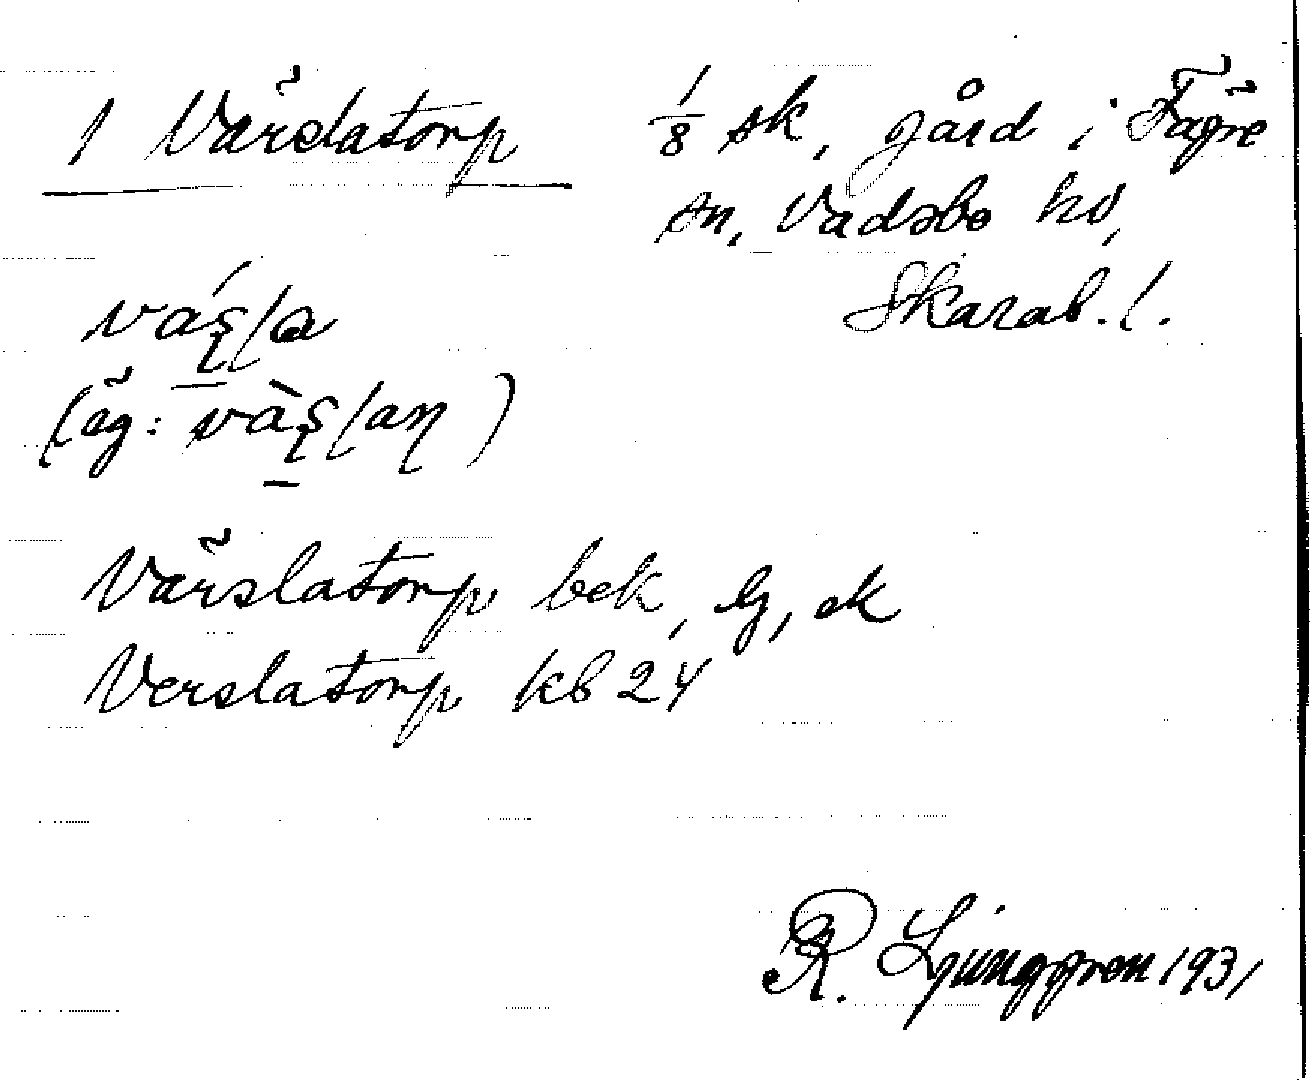 1 Värslatorp
1/8 sk, gård i Fägre
sn, Vadsbo hd,
Skarab. l.
Värslatorp bek, Eg, ek
Verslatorp kb 24
R. Ljunggren 1931